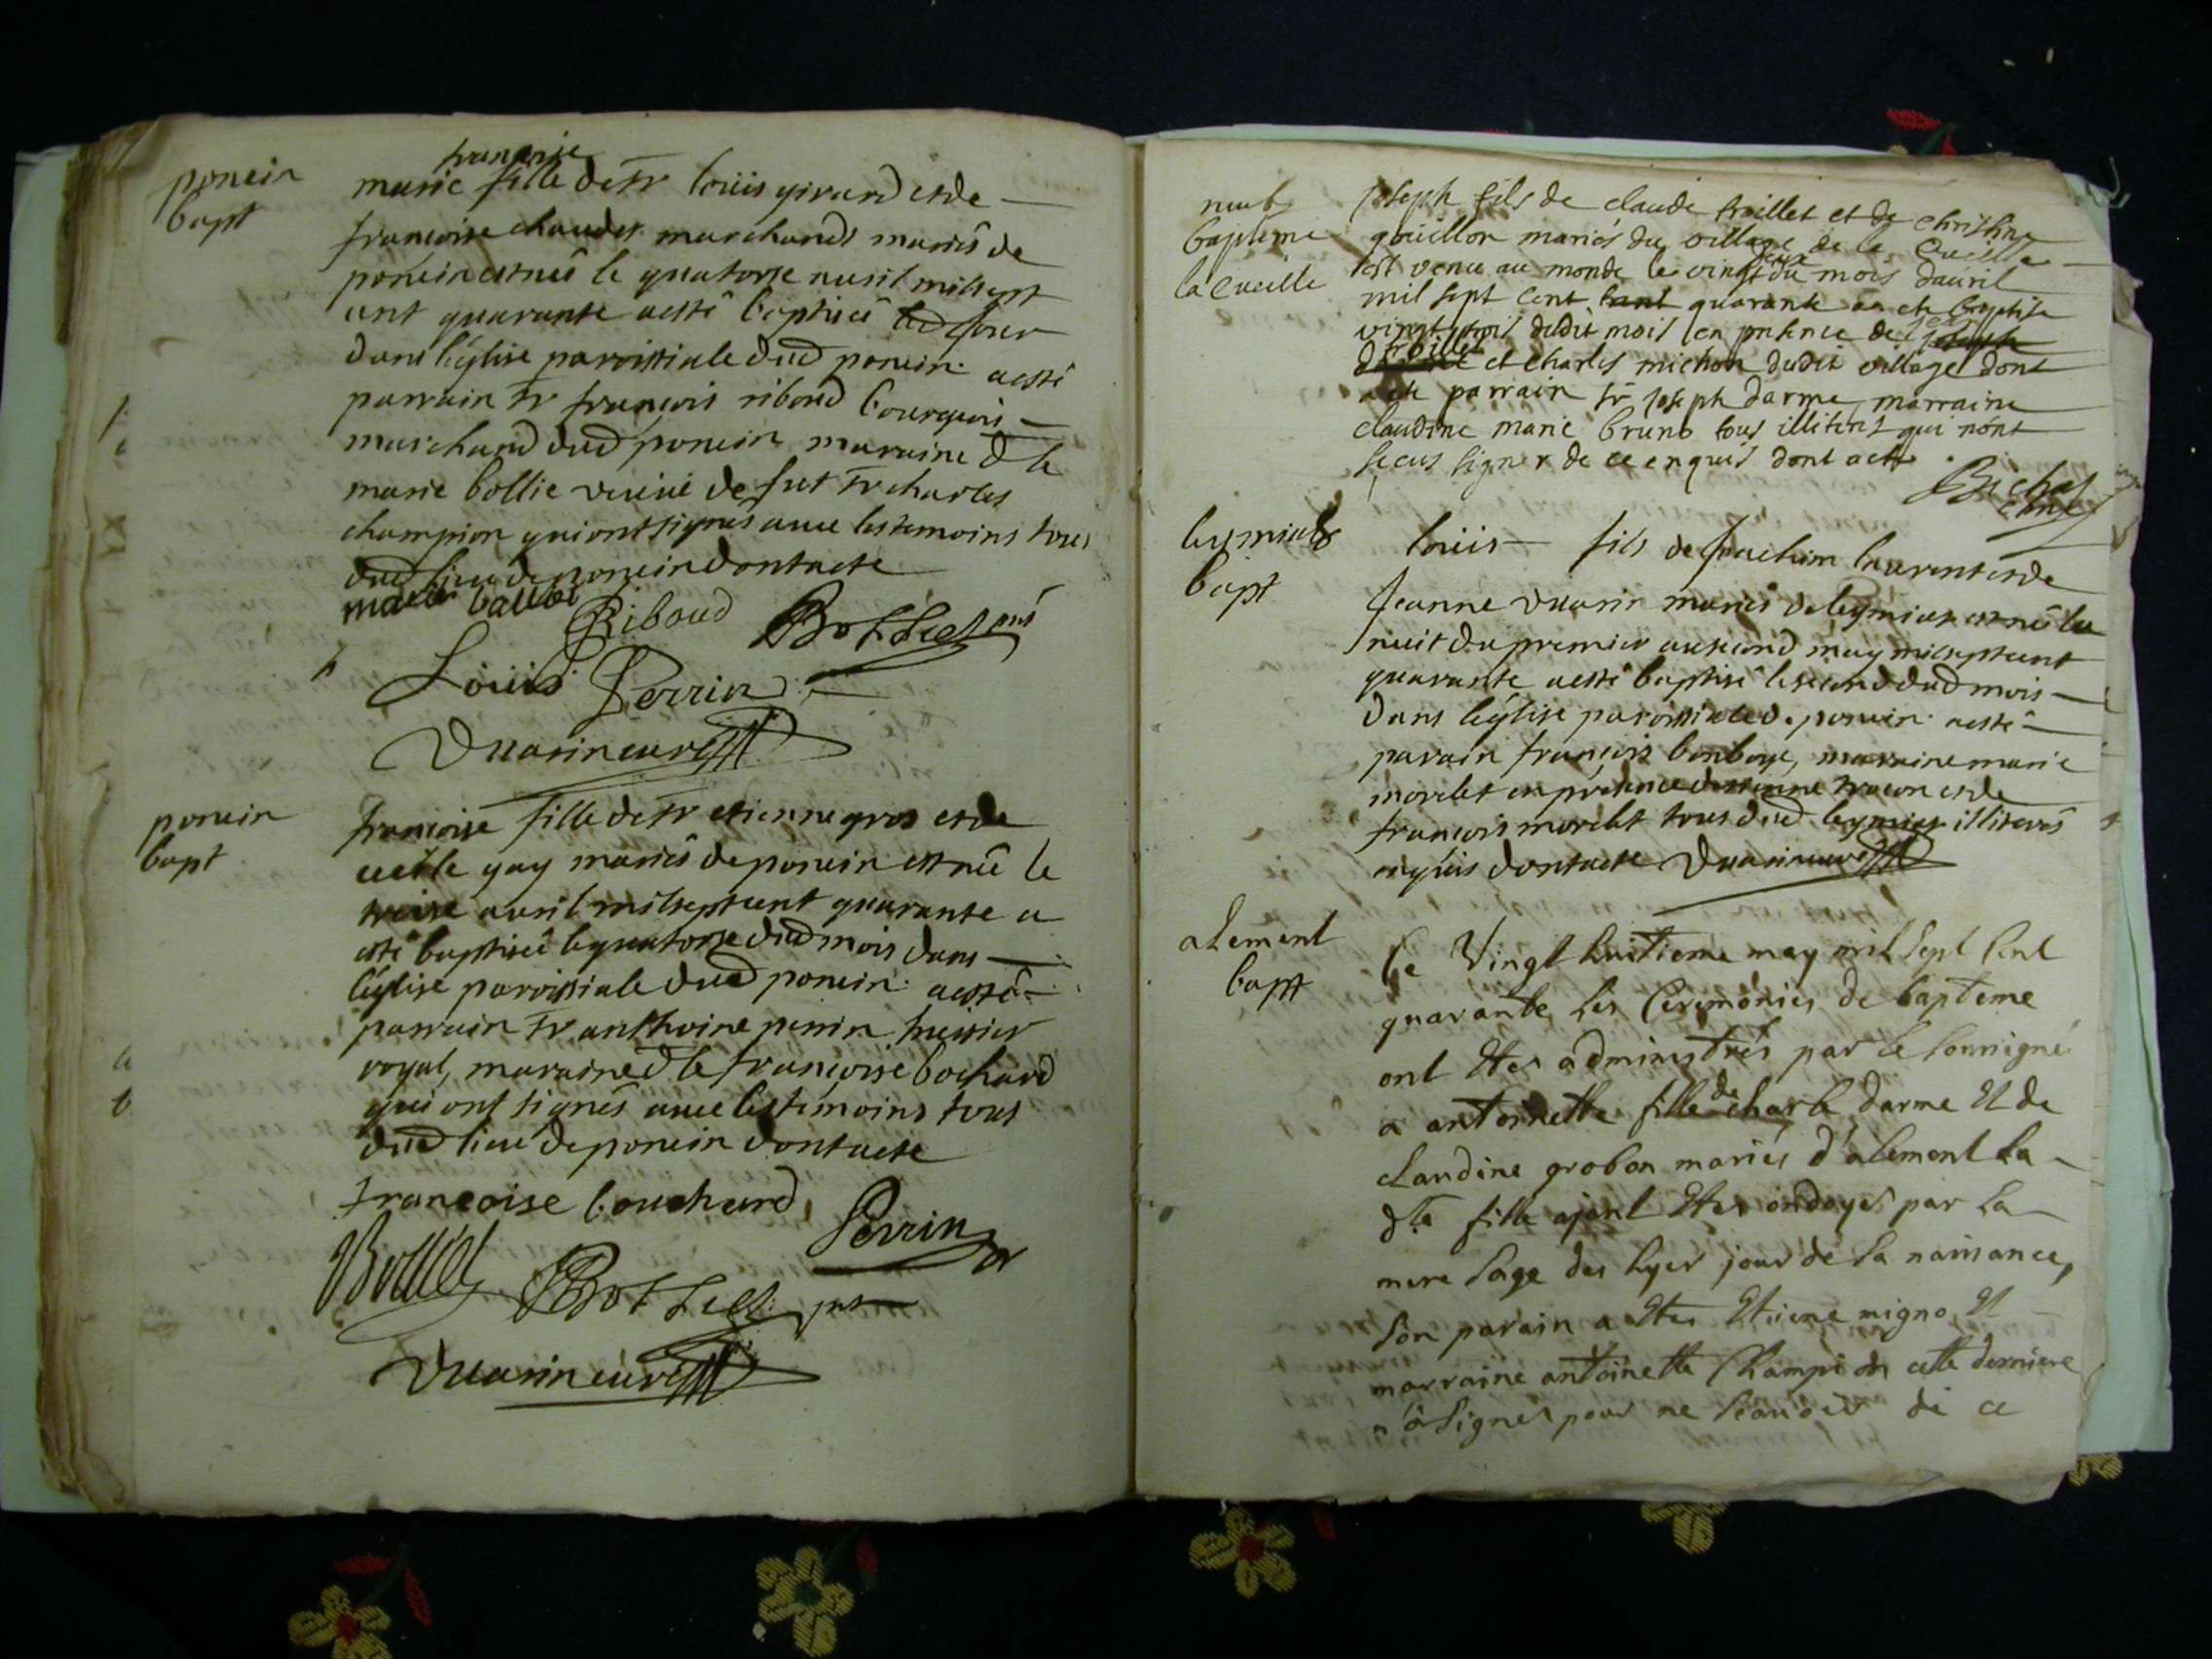 poncin
bapt
francoise
marie fille de sr loüis girard et de
francoise chaudet marchands mariés de
poncin est née le quatorse auril mil sept
cent quarante a esté baptisée led jour
dans l'église paroissiale dud poncin a esté
parrain sr françois riboud bourgeois
marchand dud poncin maraine dlle
marie bollie veuue de fut sr charles
champion qui ont signés auec les temoins tous
dud lieu de poncin dont acte
marie
Riboud
Loüis Perrin
poncin
bapt
francoise fille de sr etienne gros et de
cecile guy mariés de poncin est née le
treise auril mil sept cent quarante a
esté baptisée le quatorse dud mois dans
l'église paroissiale dud poncin a esté
parrain sr anthoine perrin huissier
royal, maraine dlle francoise bochard
qui ont signés auec les temoins tous
dud lieu de poncin dont acte
francoise bouchard
Perrin
bapteme
la Cueille
joseph fils de claude troillet et de christine
goüillon mariés du village de la Cueille
est venu au monde le vingt deux du mois dauril
mil sept cent quarante a ete baptisé
vingt trois dudit mois en presence de
troillet et charles michon dudit village dont
a ete parrain sr joseph darme marraine
claudine marie bruno tous illiterés qui nont
sceus signer de ce enquis dont acte
Bichat
bapt
loüis fils de joachim laurent et de
Jeanne duarin mariés de leymiat est né la
nuit du premier au second may mil sept cent
quarante a esté baptisé le second dud mois
dans l'église paroissiale de poncin a esté
parain françois bonboye, maraine marie
morelet en presence d'estienne et de
francois morelet tous dud leymiat illiterés
enquis dont acte
alement
bapt
Ce Vingt huitieme may mil sept Cent
quarante les Ceremonies de bapteme
ont Etes administrés par le soussigné
a antoinette fille de charle darme Et de
claudine grobon mariés d'alement la
dte fille ajant Etes ondoyés par la
mere sage des hyer jour de sa naissance,
son parain a Etes Etiene migno Et
marraine antoinette Champion cette derniere
n'a signés pour ne scauoir de ce